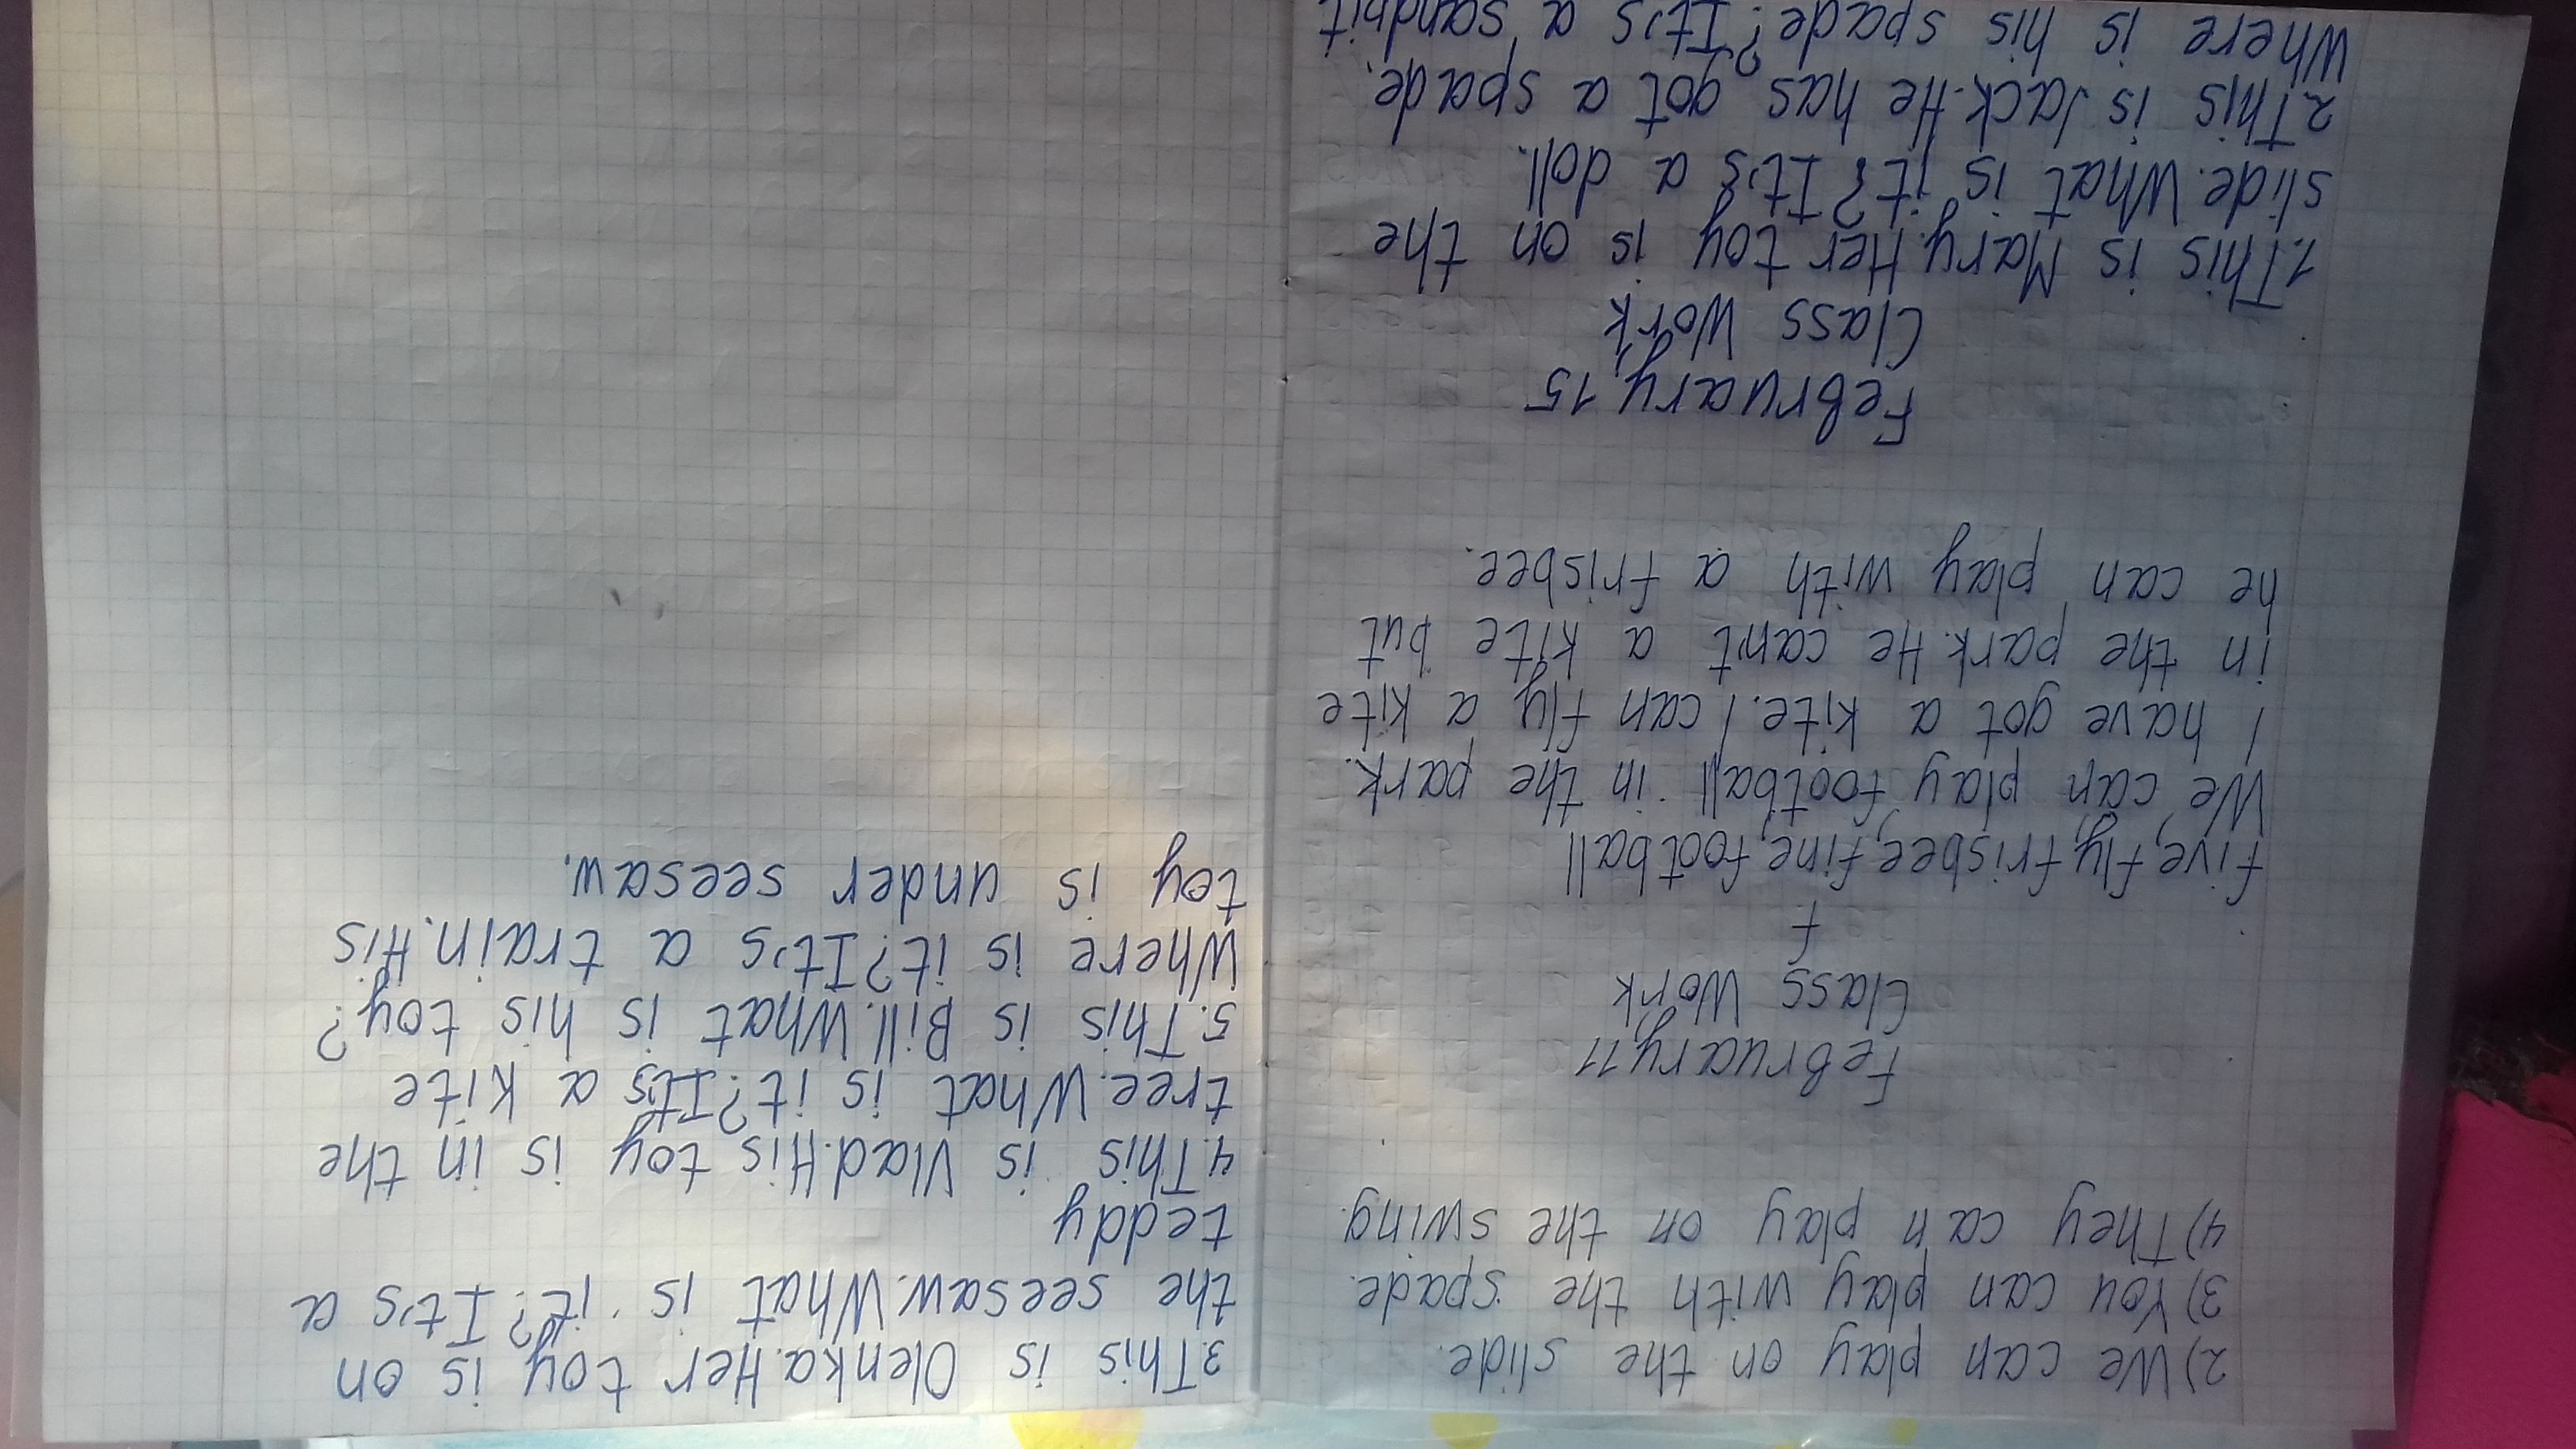 2) We can play on the slide.
3) You can play with the spade.
4) They can play on the swing.
February, 11
Class Work
f
five, fly, frisbee, fine, football
We can play football in the park.
I have got a kite. I can fly a kite
in the park. He can't a kite but
he can play with a frisbee.
February, 15
Class Work
1. This is Mary. Her toy is on the
slide. What is it? It's a doll.
2. This is Jack. He has got a spade.
Where is his spade? It's a sandpit
3. This is Olenka. Her toy is on
the seesaw. What is it? It's a
teddy
4. This is Vlad. His toy is in the
tree. What is it? It's a kite
5. This is Bill. What is his toy?
Where is it? It's a train. His
toy is under seesaw.